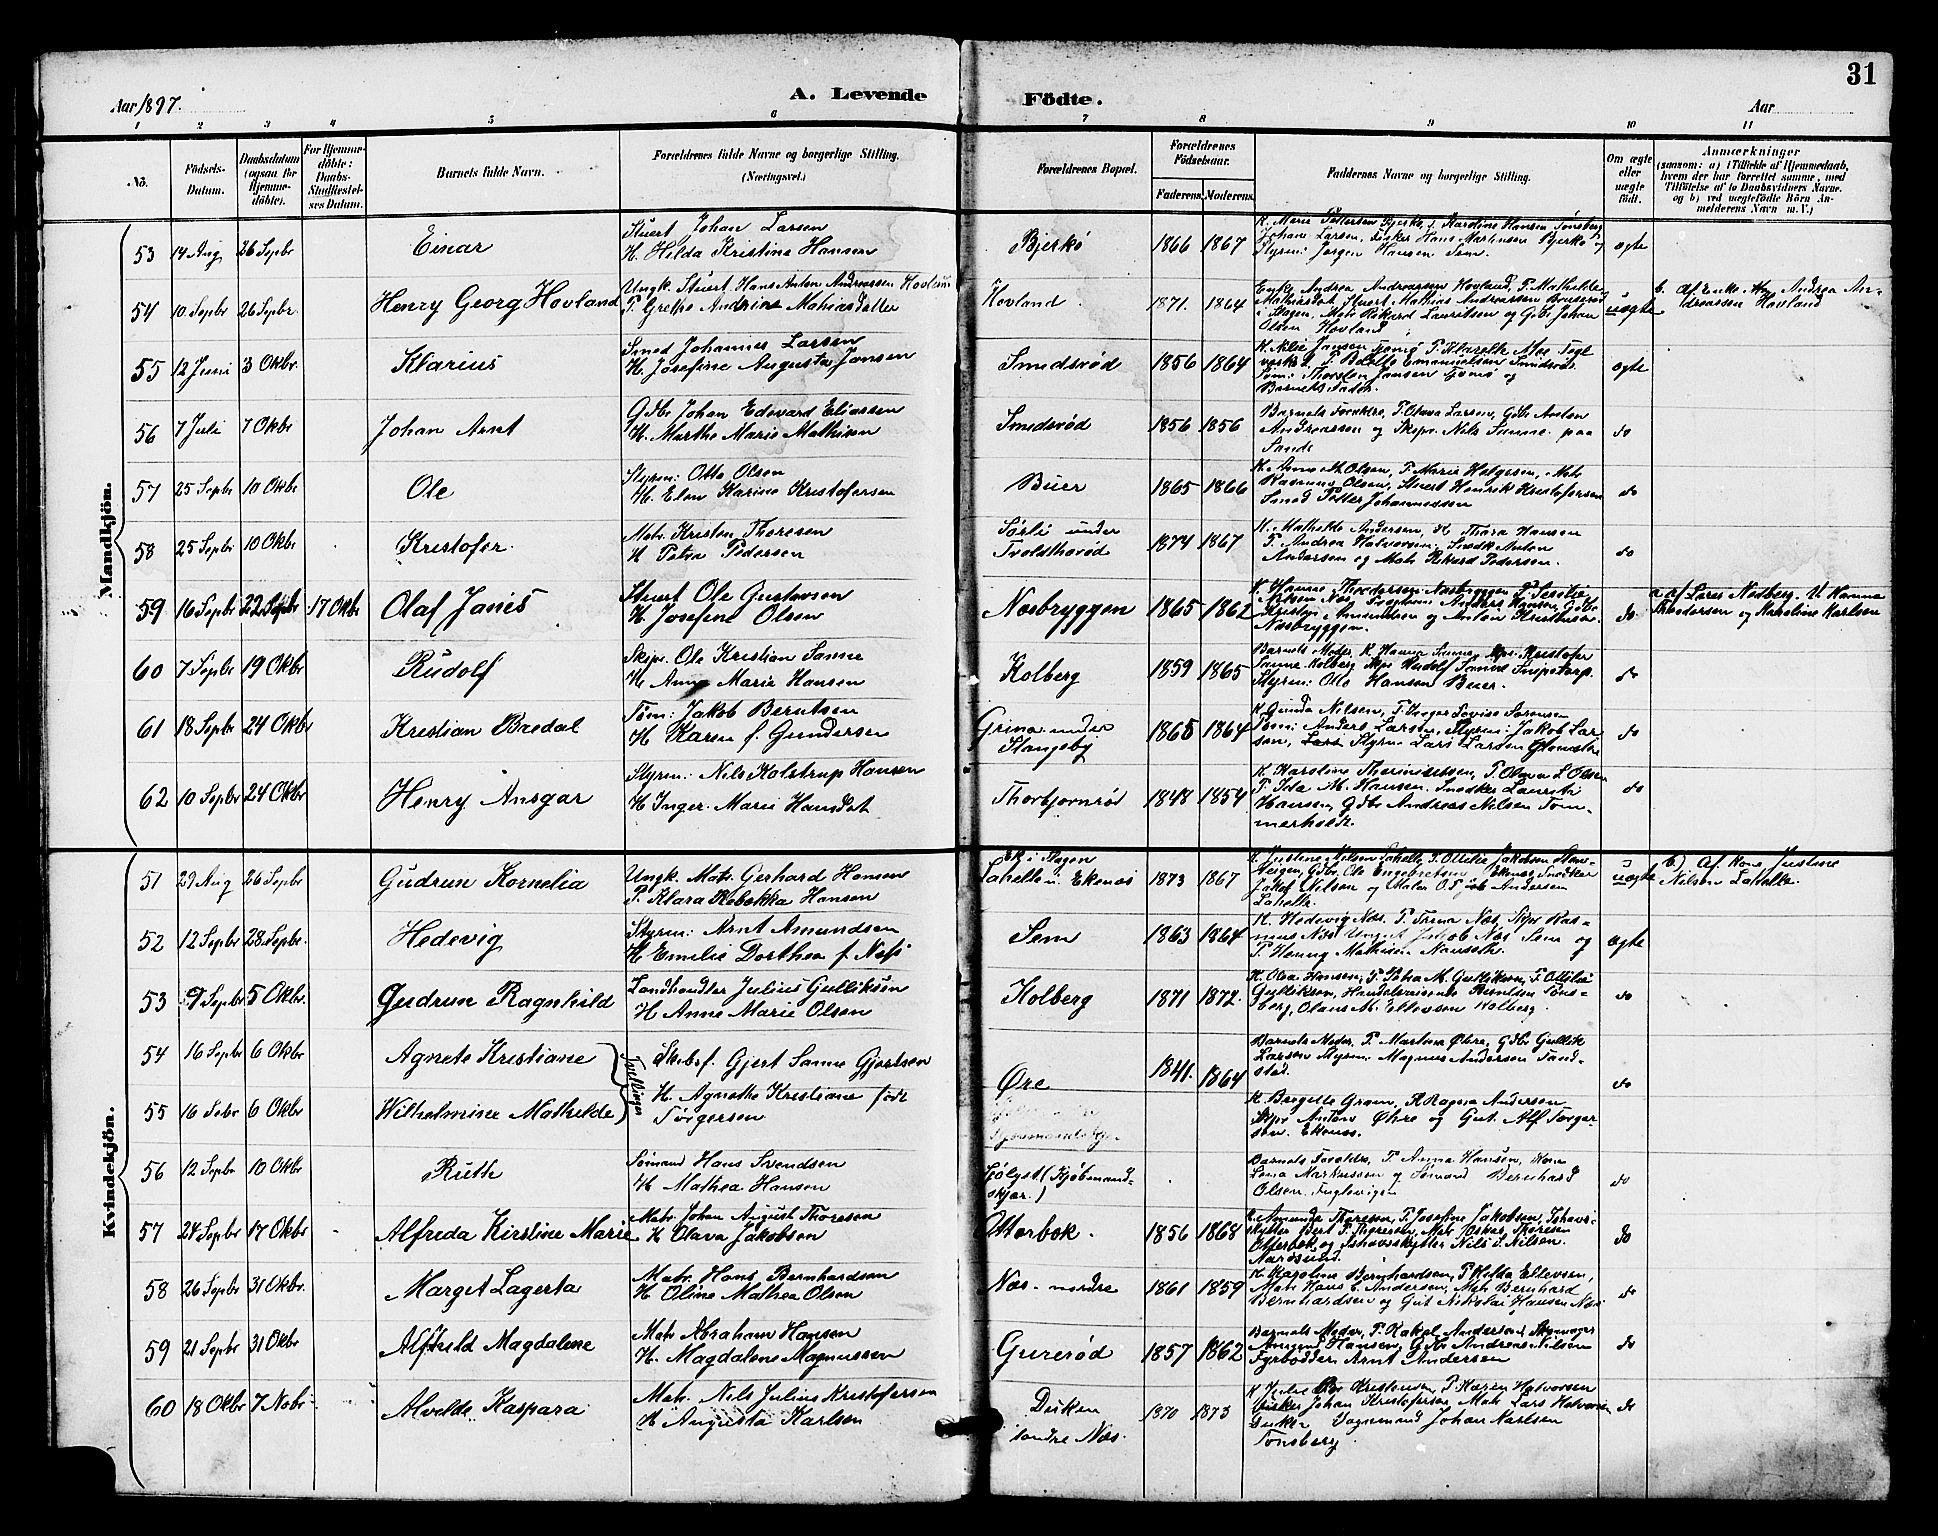 Aar 1897.
A. Levende Födte.
Aar
31
1 2 3 4 5 6 7 8 9 10 11
No.
Födsels-Datum.
Daabsdatum (ogsaa for Hjemmedöbte).
For Hjemmedöbte: Daabs-Stadfæstelses Datum.
Barnets fulde Navn.
Forældrenes fulde Navne og borgerlige Stilling.
(Næringsvei.)
Forældrenes Bopæl.
Forældrenes Födselsaar.
Faderens. Moderens.
Faddernes Navne og borgerlige Stilling.
Om ægte eller uægte födt.
Anmærkninger
(saasom: a) i Tilfælde af Hjemmedaab, hvem der har forrettet samme, med Tilföielse af to Daabsvidners Navne. og b) ved uægtefödte Börn Anmelderens Navn m. V.)
Mandkjön.
53 14 Aug 26 Septbr Einar
Stuert Johan Larsen
H. Hilda Kristine Hansen
Bjerkö 1866 1867
K. Marie Pettersen Bjerkö, J. Karoline Hansen Tønsberg
Johan Larsen, Fisker Hans Martinsen Bjerkø og
Styrm: Jørgen Hansen Sem.
ægte
54 10 Septbr 26 Septbr. Henry Georg Hovland
Ungk. Stuert Hans Anton Andreassen Hovland
P. Grethe Andrine Mathiasdatter
Hovland 1871. 1864
Enke Andrea Andreassen Hovland, P. Mathilde
Mathiasdat. Stuert Mathias Andreassen
i Slagen, Matr Rikard Lauritsen og Gdbr Johan
Olsen Hovland
uægte
b. Af Enke Andrea Andreassen Hovland
55 12 Juni 3 Oktbr. Klarius
Smed Johannes Larsen
H. Josefine Augusta Jansen
Smedsrød 1856 1864
Tøm: Thorsten Jansen Tjømø og
Barnets Fader.
ægte
56 7 Juli 7 Oktbr Johan Arnt
Gdbr Johan Edevard Eliassen
H. Marthe Marie Mathisen
Smedsrød 1856 1856
Barnets Forældre, P. Olava Larsen, Gdbr Anton
Andreassen og Skpr. Nils Sanne paa
Sande
do
57 25 Septbr 10 Oktbr Ole
Styrm: Otto Olsen
H. Elen Karine Kristofersen
Buer 1865 1866
K. Anne M Olsen, P. Marie Helgesen, Matr
Rasmus Olsen, Stuert Henrik Kristofersen
Smed Petter Johannessen
do
58 25 Septbr 10 Oktbr Kristofer.
Matr. Kristen Thoresen
H Petra Pedersen
Sørli under
Tvoldthorød 1874 1867
K. Mathilde Andersen, K Thora Hansen
P. Andrea Halvorsen, Snedk Anton
Andersen og Matr Rikard Pedersen.
do
59 16 Septbr 22 Septbr 17 Oktbr Olaf Janes
Stuert Ole Gustavsen
H. Josefine Olsen
Næsbryggen 1865 1862
Næsbryggen.
do
a. af Lars Næsberg. V. Hanna
Theodorsen og Karoline Karlsen
60 7 Septbr 19 Oktbr Rudolf
Skpr. Ole Kristian Sanne
H Anne Marie Hansen
Kolberg 1859 1865
Barnets Moder, K Hanna Sanne, Skpr. Kristofer
Sanne Kolberg Skpr Rudolf Sanne
Styrm: Otto Hansen Buer.
do
61 18 Septbr 24 Oktbr Kristian Bredal
Tøm: Jakob Berntsen
H Karen f. Gundersen
Grina under
Stangeby 1865 1864
K Gunda Nilsen, P. Inger Lovise Sørensen
Tøm: Anders Larsen, Styrm: Jakob Larsen, Styrm Lars Larsen
do
62 10 Septbr 24 Oktbr Henry Ansgar
Styrm: Nils Kolstrup Hansen
H Inger Marie Hansdat
Thorbjørnrød 1848 1854
K. Karoline P. Olava L Olsen
P. Ida M. Hansen, Snedker Laurits
Hansen, Gdbr Andreas Nilsen Tommerholdt.
do
Kvindekjön.
51 29 Aug 26 Septbr Gudrun Kornelia
Ungk. Matr. Gerhard Hansen
P. Klara Rebekka Hansen
Ek i Slagen
Lahelle n. Ekenæs 1873 1867
K. Justine Nilsen Lahelle, P. Ottilie Jakobsen
Gdbr. Ole Engebretsen Ekenæs, Snedker
Jakob Nilsen og Maler Andersen
Lahelle
uægte
b) Af Kone Justine
Nilsen Lahelle.
52 12 Septbr 28 Septbr. Hedevig
Styrm: Arnt Amundsen
H Emilie Dorthea f. Næss
Sem 1863 1864
K. Hedevig Næs. P. Trina Næs, Skpr Rasmus Næs Ungk Jakob Næs Sem og
P. Henny Mathisen
ægte
53 9 Septbr 5 Oktbr. Gudrun Ragnhild
Landhandler Julius Gulliksen
H Anne Marie Olsen
Kolberg 1871 1872.
K. Olea Hansen, P. Petra M. Gulliksen, P. Ottilie
Gulliksen, Handelsreisende Tønsberg, Olaus M. Ellevsen Kolberg.
do
54 16 Septbr 6 Oktbr Agnete Kristiane
55 16 Sebr 6 Oktbr Wilhelmine Mathilde
Tvillinger
Skibsf. Gjert Sanne Gjertsen
H. Agnethe Kristiane født
Torgersen
Øre 1841. 1864
Barnets Moder, P. Martine Øhre, Gdbr Gullik
Larsen Styrm: Magnus Andersen Sandstad.
K. Bergitte Gram, P. Ragna Andersen
Skpr Anton Øhre og Gut. Alf Torgersen. Ekenæs.
do
56 12 Septbr 10 Oktbr Ruth
Sømand Hans Svendsen
H Mathea Hansen
Følyst (Kjøbmandskjær.)
Barnets Forældre, P. Anna Hansen, Kone
Lena Markussen og Sømand Bernhard
Olsen. Fuglevigen
do
57 24 Septbr 17 Oktbr Alfreda Kirstine Marie
Matr. Johan August Thoresen
H Olava Jakobsen
Otterbok. 1856 1868
K. Amanda Thoresen, P. Josefine Jakobsen, Ishavsskytter Bert P. Thoresen, Matr Oskar Thoresen
Otterbok og Ishavsskytter Nils S. Nilsen.
do
58 26 Septbr 31 Oktbr Margit Lagerta
Matr. Hans Bernhardsen
H Oline Mathea Olsen
Næs nordre 1861 1859
K Karoline Bernhardsen, P Hilda Ellevsen,
Matr Hans E. Andersen, Matr Bernhard
Bernhardsen og Gut Nikolai Hansen Næs
do
59 21 Septbr 31 Oktbr Alfhild Magdalene
Matr Abraham Hansen
H. Magdalene Magnussen
Gurerød 1857 1862
Barnets Moder, P. Rakel Andersen, Skomager
Amund Hansen, Gdbr Andreas Nilsen
Fyrbødder Arnt Andersen
do
60 18 Oktbr 7 Nobr Alvelde Kaspara
Matr. Nils Julius Kristofersen
H Augusta Karlsen
Duken
søndre Næs. 1870 1873
Fisker Johan Kristofersen, Matr Lars Halvorsen
Duken Vognmand Johan Karlsen
Tønsberg
do